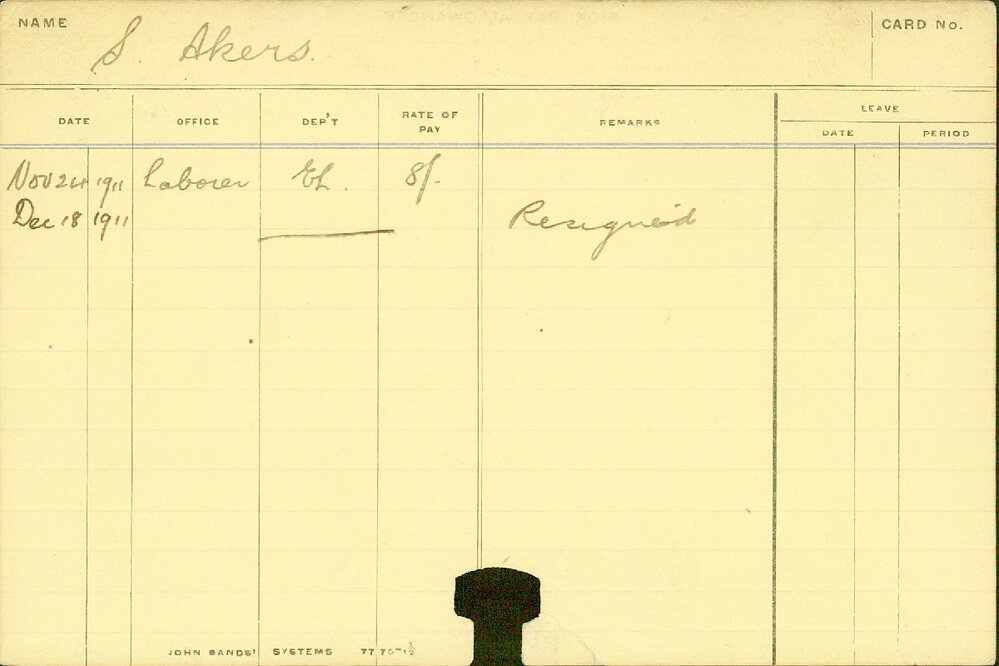 NAME S. Akers. CARD No.
DATE OFFICE DEP'T RATE OF PAY REMARKS LEAVE
DATE PERIOD
Nov 24 1911 Laborer EL. 8/-
Dec 18 1911 Resigned
JOHN SANDS' SYSTEMS